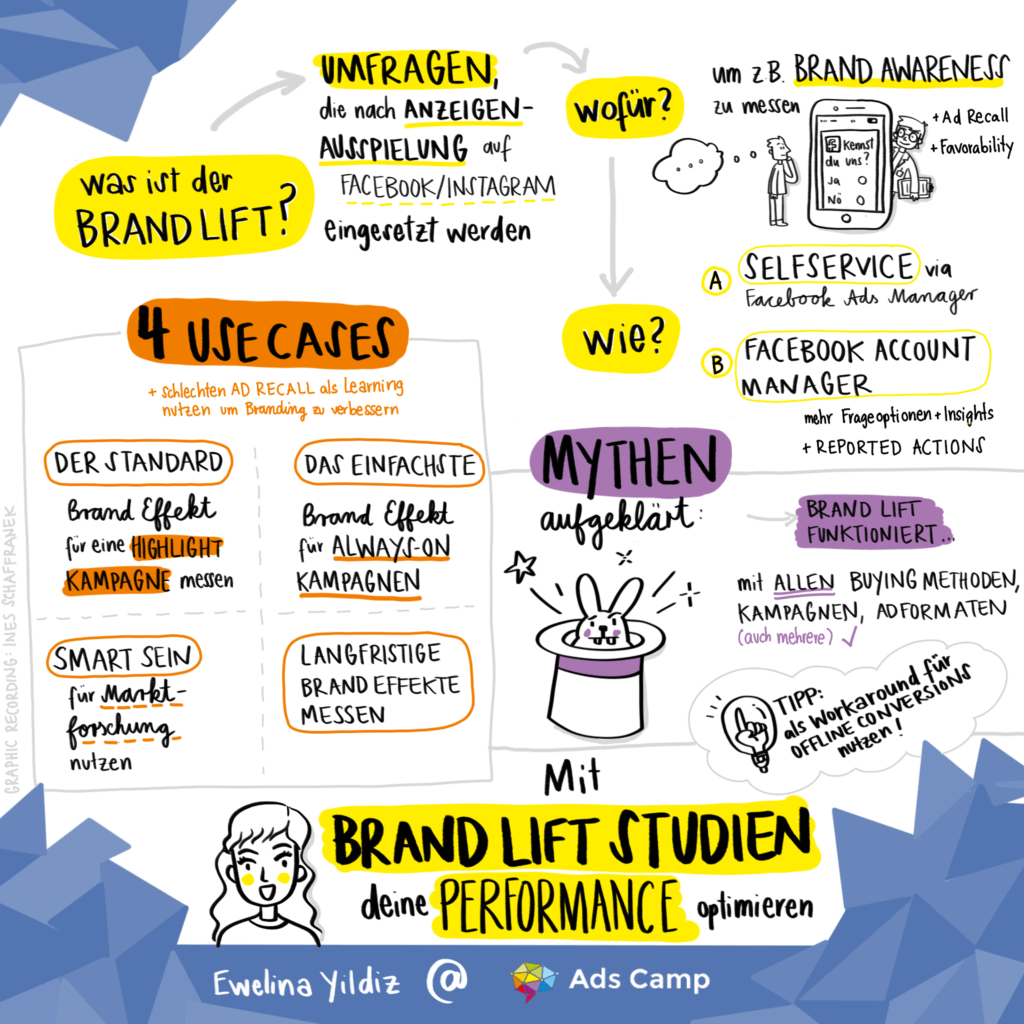 was ist der
BRAND LIFT?
UMFRAGEN,
die nach ANZEIGEN-
AUSSPIELUNG auf
FACEBOOK/INSTAGRAM
eingesetzt werden
wofür?
um z.B. BRAND AWARENESS
zu messen
+ Ad Recall
+ Favorability
Kennst
du uns?
Ja
Nö
wie?
A
SELFSERVICE via
Facebook Ads Manager
B
FACEBOOK ACCOUNT
MANAGER
mehr Frageoptionen + Insights
+ REPORTED ACTIONS
4 USE CASES
+ schlechten AD RECALL als Learning
nutzen um Branding zu verbessern
DER STANDARD
Brand Effekt
für eine HIGHLIGHT
KAMPAGNE messen
DAS EINFACHSTE
Brand Effekt
für ALWAYS-ON
KAMPAGNEN
SMART SEIN
für Markt-
forschung
nutzen
LANGFRISTIGE
BRAND EFFEKTE
MESSEN
MYTHEN
aufgeklärt:
BRAND LIFT
FUNKTIONIERT...
mit ALLEN BUYING METHODEN,
KAMPAGNEN, ADFORMATEN
(auch mehrere) ✓
TIPP:
als Workaround für
OFFLINE CONVERSIONS
nutzen!
Mit
BRAND LIFT STUDIEN
deine PERFORMANCE optimieren
Ewelina Yildiz @ Ads Camp
GRAPHIC RECORDING: INES SCHAFFRANEK